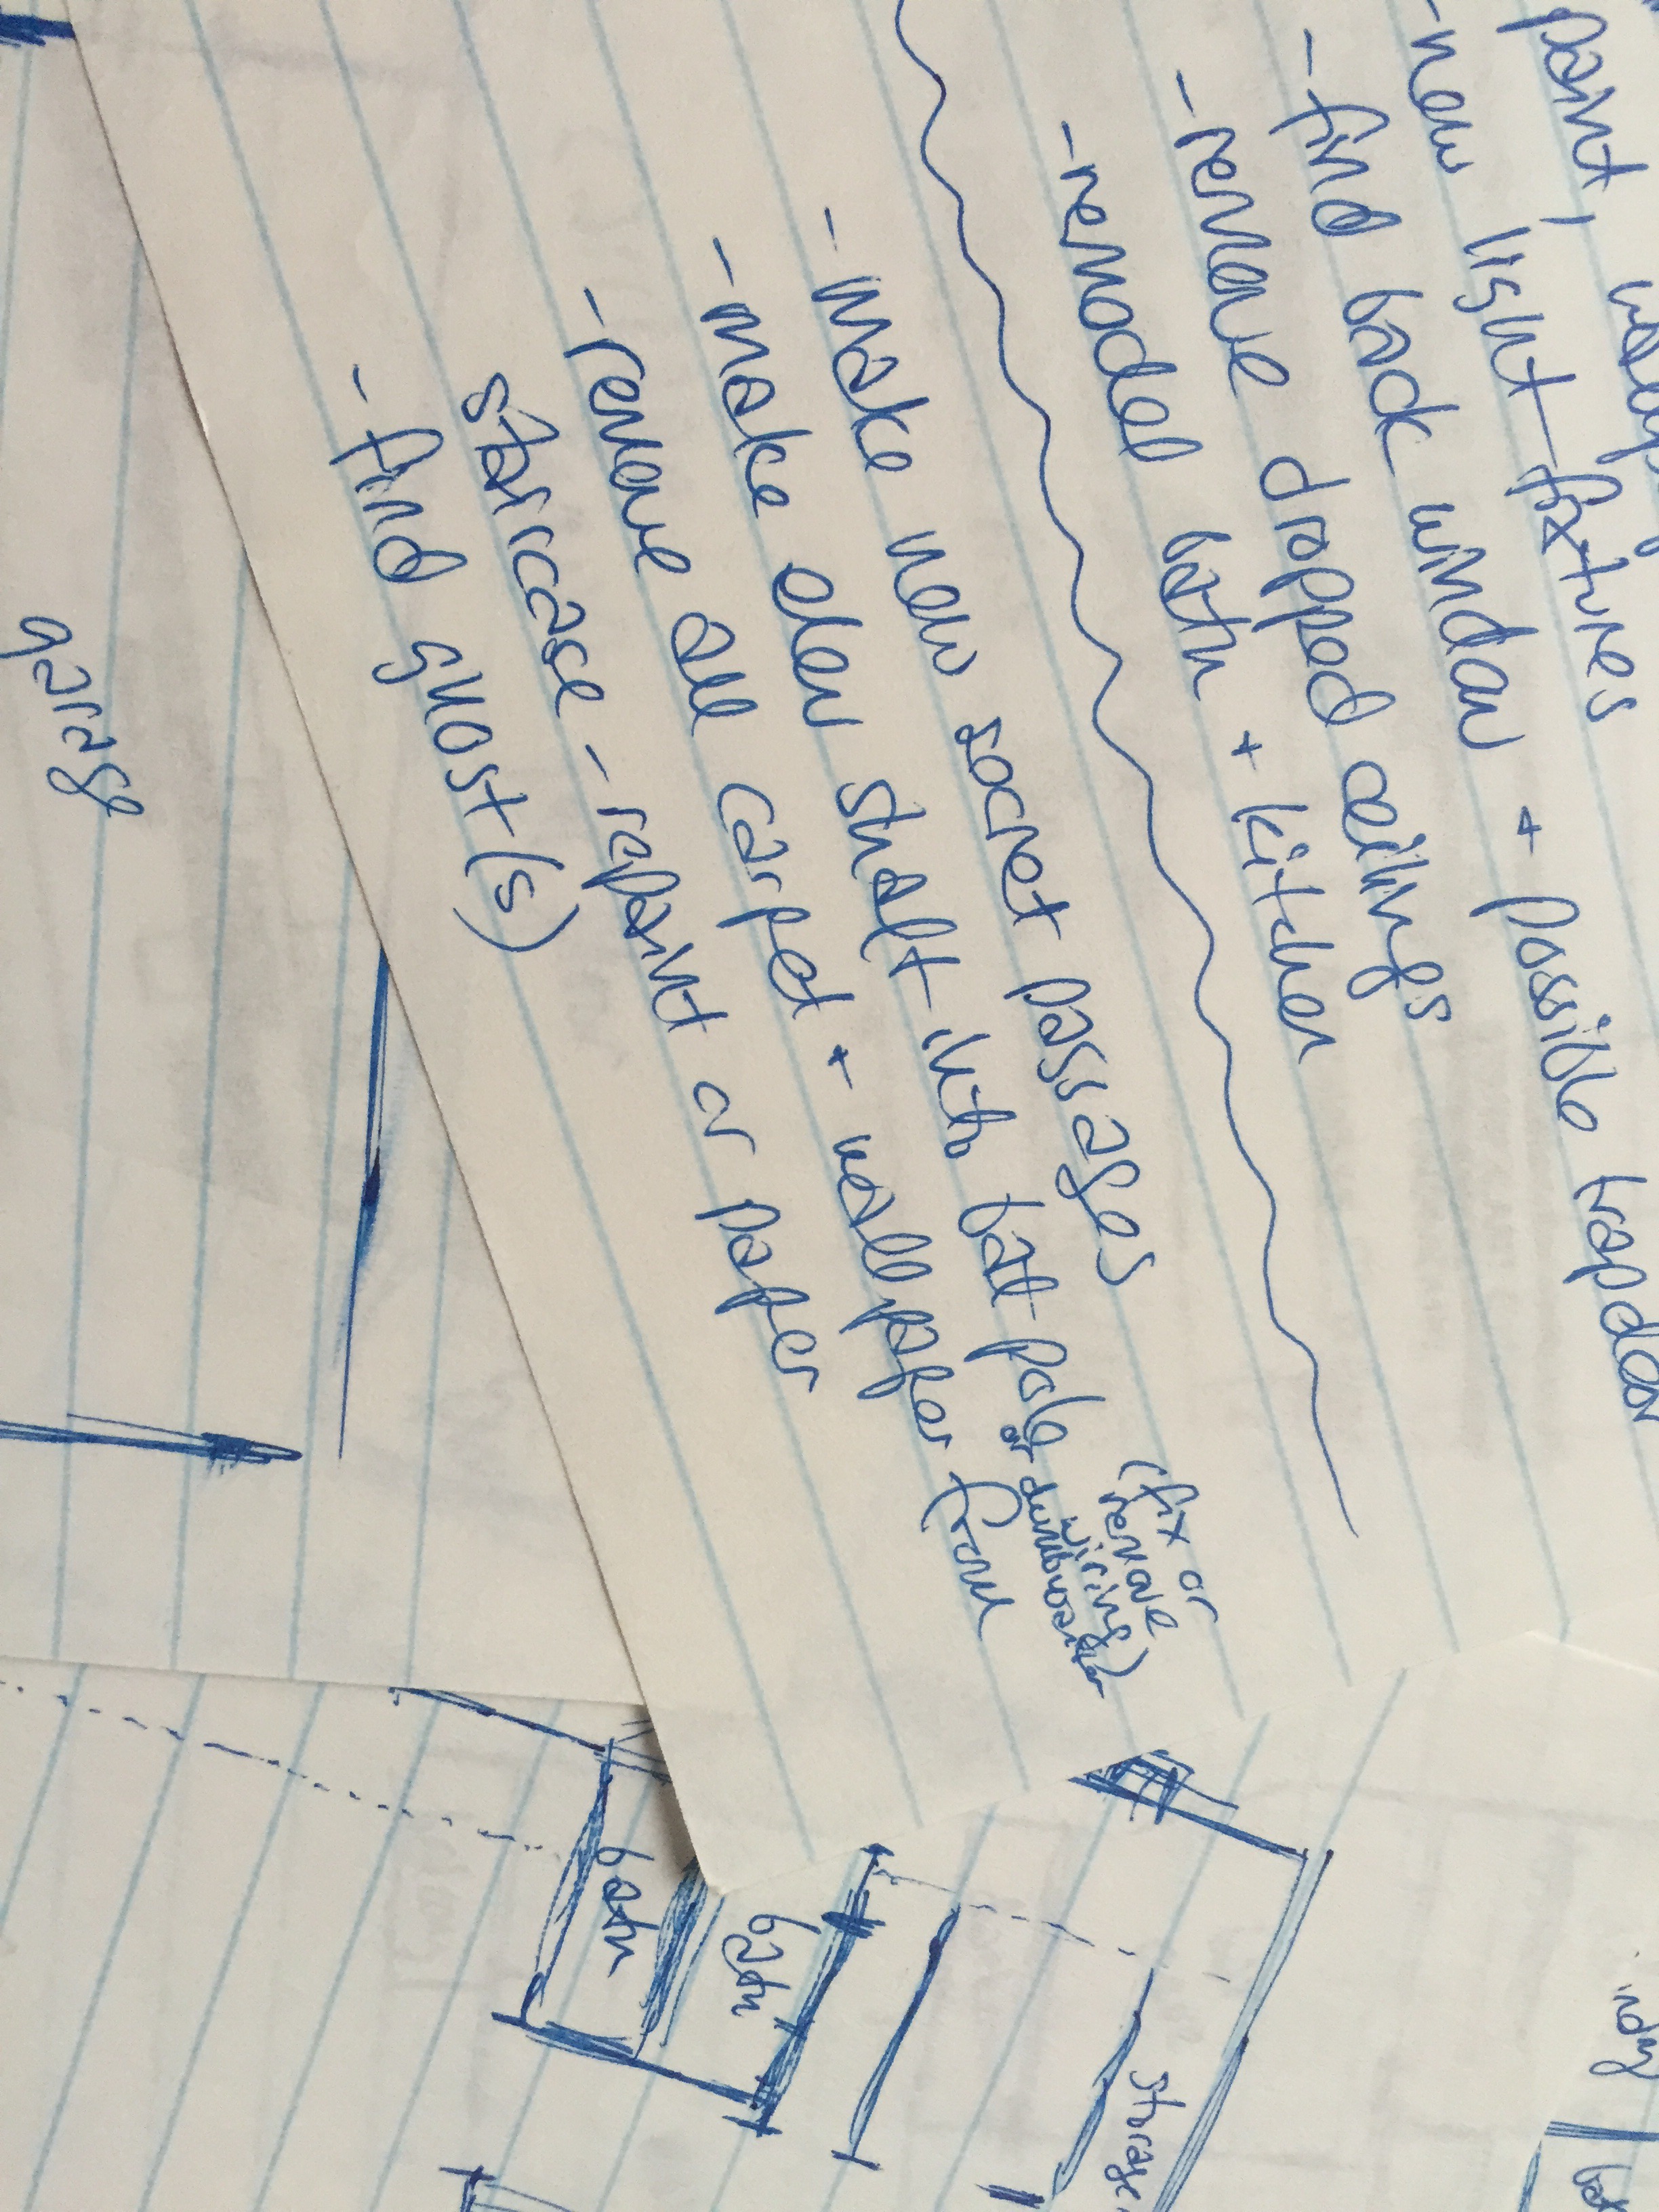 paint,
- new light fixtures
- find back window + possible trapdoor
- remove dropped ceilings
- remodel bath + kitchen
- make new secret passages
- make elev shaft into bat pole or dumbwaiter
(fix or
remove
wiring)
- remove all carpet + wallpaper from
staircase - repaint or paper
- find ghost(s)
garage
bath
bath
storage